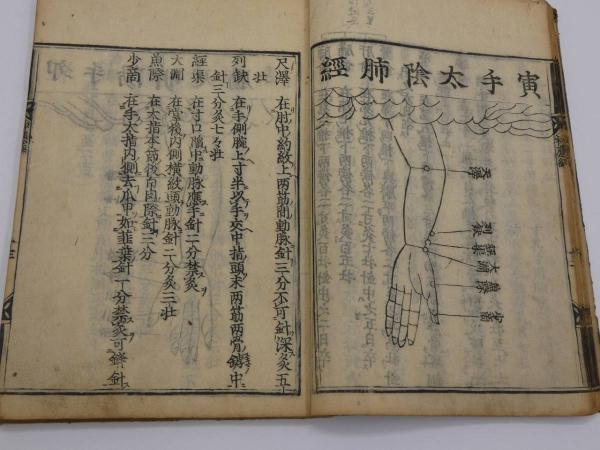 寅手太陰肺經
尺澤
列缺
經渠
大淵
魚際
少商
尺澤 在肘中約紋上兩筋間動脉針三分不可針深灸五
壯
列缺 在手側腕上寸半以手交中指頭末兩筋兩骨罅中
針三分灸七々壯
經渠 在寸口膶中動脉應手針二分禁灸
大淵 在掌後內側橫紋頭動脉針二分灸三壯
魚際 在大指本節後內側白肉際針三分
少商 在手大指內側去爪甲如韮葉針一分禁灸可鋒針
手 卯